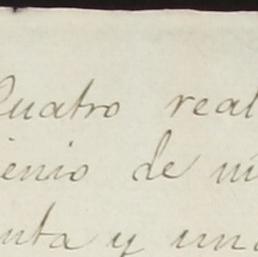 Cuatro real
ienio de mi
nta y un